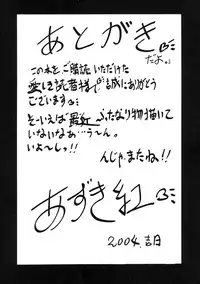 あとがき
だよ。
この本を、ご購読いただけた
愛しき読者様、誠にありがとう
ございます
そーいえば最近ふたなり物描いて
いないなぁ…う〜ん。
いよ〜しっ!!
んじゃまたね!!
あずき紅
2004.吉日